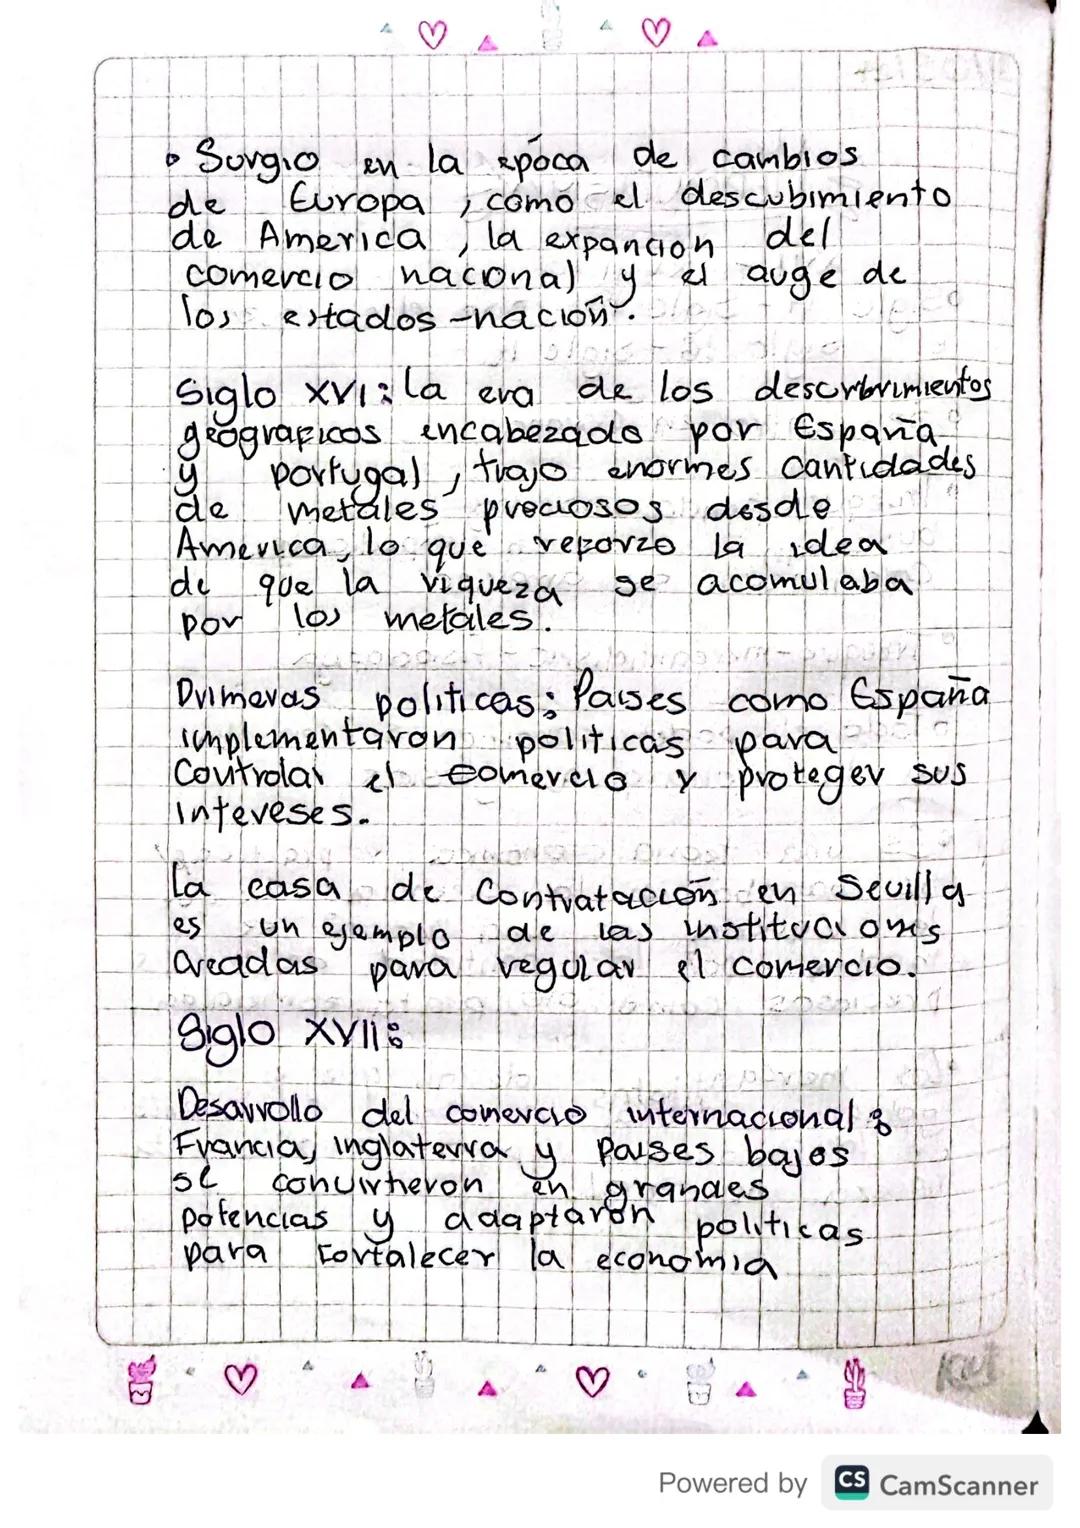 Surgio en la epóca de cambios
de Europa, como el descubimiento
de America, la expancion del
comercio nacional y el auge de
los estados-nación.
Siglo XVI: la era de los descubrimientos
geograficos encabezado por España
y portugal, trajo enormes cantidades
de metales preciosos desde
America, lo que reforzo la idea
de que la riqueza se acomulaba
por los metales.
Primeras politicas: Paises como España
implementaron politicas para
Controlar el comercio y proteger sus
intereses.
La casa de Contratación en Sevilla
es un ejemplo de las instituciones
Creadas para regular el comercio.
Siglo XVII:
Desarrollo del comercio internacional:
Francia, inglaterra y paises bajos
se convirtieron en grandes
potencias y adaptarón politicas
para fortalecer la economia
Powered by CS CamScanner